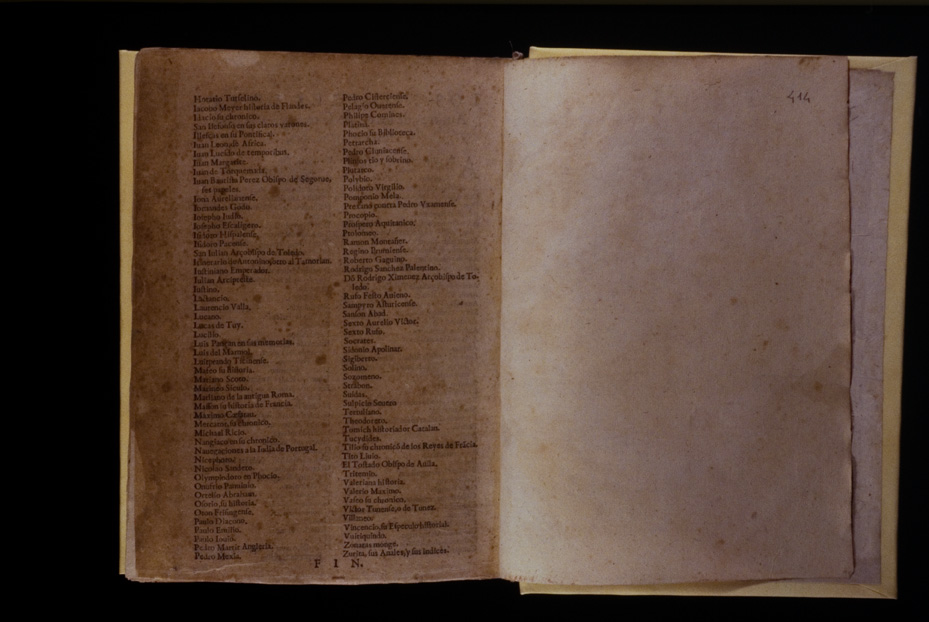 Horatio Turselino.
Iacono Meyer historia de Flandes.
Idacio su chronico.
San Ilefonso en sus claros varones.
Illescas en su Pontifical.
Iuan Leon de Africa.
Iuan Lucido de temporibus.
Iuan Margarite.
Iuan de Torquemada.
Iuan Bautista Perez Obispo de Segorue,
sus papeles.
Iona Aurelianense.
Iornandes Godo.
Iosepho Iudio.
Iosepho Escaligero.
Isidoro Hispalense.
Isidoro Pacense.
San Iulian Arçobispo de Toledo.
Itinerario de Antonino
Iustiniano Emperador.
Iulian Arcipreste.
Iustino.
Lactancio.
Laurencio Valla.
Lucano.
Lucas de Tuy.
Lucilo.
Luis Pançan en sus memorias.
Luis del Marmol.
Luitprando Ticinense.
Marco su historia.
Mariano Scoto.
Marineo Siculo.
Marliano de la antigua Roma.
Masson su historia de Francia.
Maximo Cæsaraug.
Mercator, su chronico.
Michael Ricio.
Nangiaco en su chronico.
Nauegaciones a la India de Portugal.
Nicephoro.
Nicolao Sandero.
Olympiodoro en Phocio.
Onufrio Panuinio.
Ortelio Abraham.
Osorio, su historia.
Oton Frisingense.
Paulo Diacono.
Paulo Emilio.
Paulo Iouio.
Pedro Martir Angleria.
Pedro Mexia.
Pedro Cisterciense.
Pelagio Ouetense.
Philipo Comines.
Platina.
Phocio su Biblioteca.
Petrarcha.
Pedro Cluniacense.
Plinios tio y sobrino.
Plutarco.
Polybio.
Polidoro Virgilio.
Pomponio Mela.
Procopio.
Prospero Aquitanico.
Ptolomeo.
Ramon Montaner.
Regino Prumiense.
Roberto Gaguino.
Rodrigo Sanchez Palentino.
Dõ Rodrigo Ximenez Arçobispo de To-
ledo.
Rufo Festo Auieno.
Sampyro Asturicense.
Sanson Abad.
Sexto Aurelio Victor.
Sexto Rufo.
Socrates.
Sidonio Apolinar.
Sigiberto.
Solino.
Sozomeno.
Strabon.
Suidas.
Sulpicio Seuero
Tertuliano.
Theodoreto.
Tomich historiador Catalan.
Tucydides.
Tilio su chronicõ de los Reyes de Frãcia.
Tito Liuio.
El Tostado Obispo de Auila.
Tritemio.
Valeriana historia.
Valerio Maximo.
Vaseo su chronico.
Victor Tunense, o de Tunez.
Villaneo
Vincencio, su Especulo historial.
Voitiquindo.
Zonaras monge.
Zurita, sus Anales, y sus indices.
F I N.
414